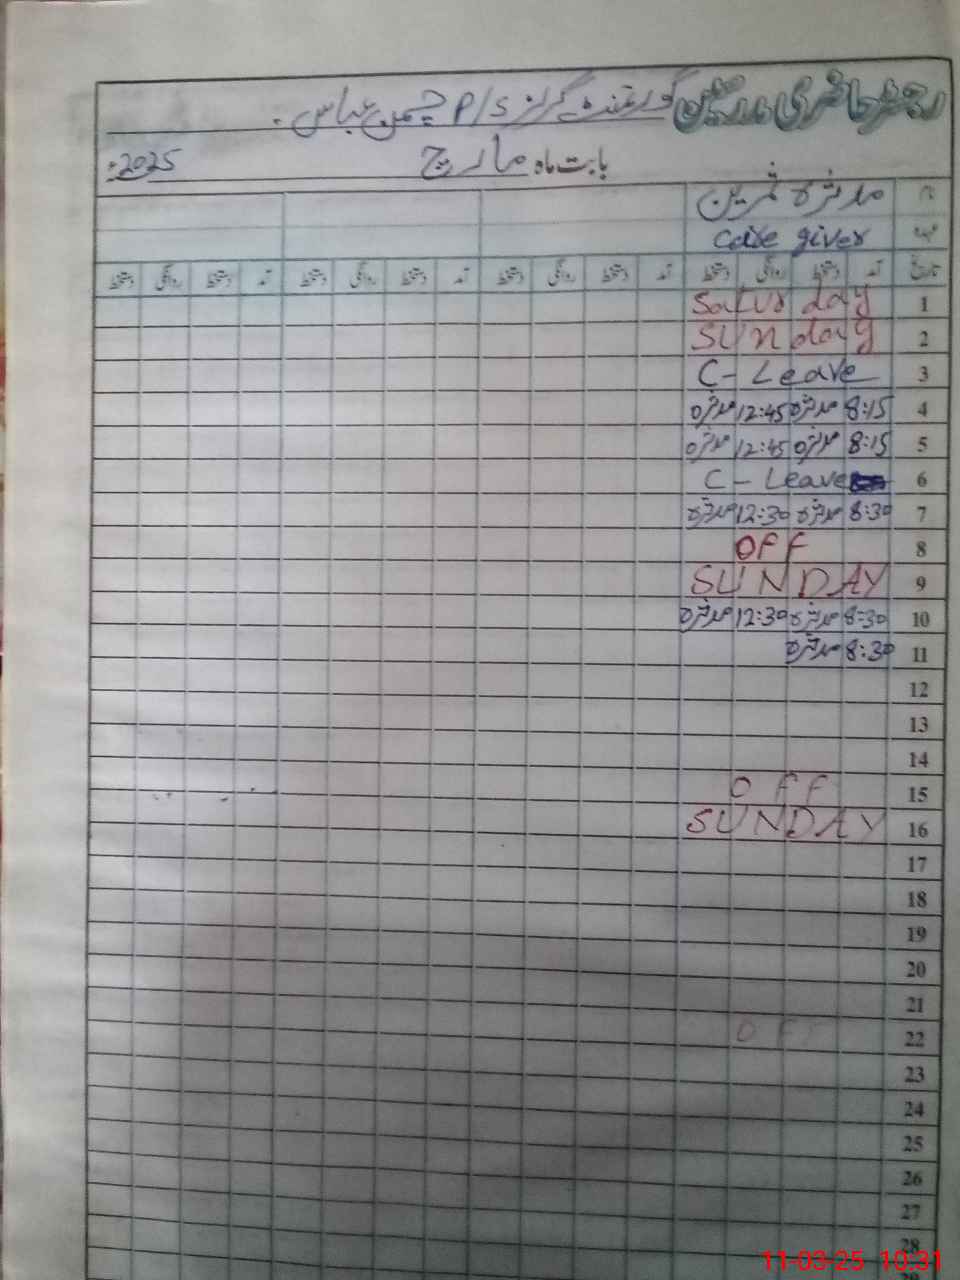 رجسٹر حاضری مدرسین گورنمنٹ گرلز P/S چمن عباس.
بابت ماہ مارچ 2025ء
نام
مدثرہ ثمرین
عہدہ
Care giver
تاریخ آمد دستخط روانگی دستخط آمد دستخط روانگی دستخط آمد دستخط روانگی دستخط آمد دستخط روانگی دستخط
1 Saturday
2 SUnday
3 C- Leave
4 8:15 مدثرہ 12:45 مدثرہ
5 8:15 مدثرہ 12:45 مدثرہ
6 C - Leave
7 8:30 مدثرہ 12:30 مدثرہ
8 OFF
9 SUNDAY
10 8:30 مدثرہ 12:30 مدثرہ
11 8:30 مدثرہ
12
13
14
15 OFF
16 SUNDAY
17
18
19
20
21
22 OFF
23
24
25
26
27
28
11-03-25 10:31